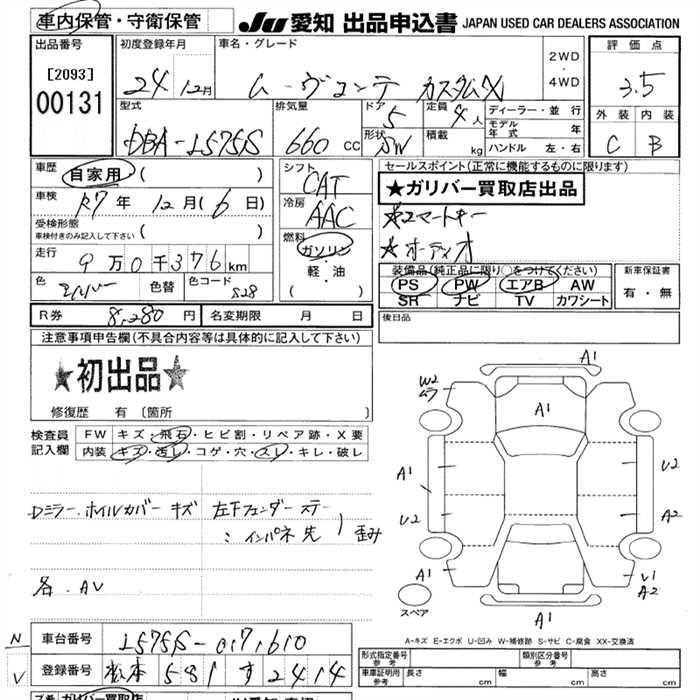 車内保管・守衛保管
JU 愛知 出品申込書 JAPAN USED CAR DEALERS ASSOCIATION
出品番号
[2093]
00131
初度登録年月
24年12月
車名・グレード
ムーヴコンテ カスタムX
2WD
・
4WD
評価点
3.5
外装 内装
C B
型式
DBA-L575S
排気量
660 cc
ドア
5
形状
SW
定員
4人
積載
kg
ディーラー・並行
モデル年式 年
ハンドル 左・右
車歴
自家用 ( )
車検
R7年 12月(6日)
受検形態
車検付きのみ記入して下さい ( )
走行
9万0千376km
色
シルバー
色替
色コード
S28
シフト
CAT
冷房
AAC
燃料
ガソリン
・
軽・油
( )
セールスポイント(正常に機能するものに限ります)
★ガリバー買取店出品
★スマートキー
★オーディオ
装備品(純正品に限り○をつけてください)
PS PW エアB AW
SR ナビ TV カワシート
新車保証書
有・無
後日品
R券 8,280円 名変期限 月 日
注意事項申告欄(不具合内容等は具体的に記入して下さい)
★初出品★
修復歴 有 〔箇所 〕
検査員記入欄
FW キズ・飛石・ヒビ割・リペア跡・X要
内装 キズ・汚レ・コゲ・穴・スレ・キレ・破レ
Dミラー.ホイルカバー キズ
左Fフェンダーステー
:インパネ先 ) 歪み
各.AV
A1
W2
ムラ
A1
A1
U2
U2
A2
A1
U1
A2
A1
スペア
A-キズ E-エクボ U-凹み W-補修跡 S-サビ C-腐食 XX-交換済
N
V
車台番号 L575S-0171610
登録番号 松本 581 す 2414
形式指定番号
参考
類別区分番号
参考
車庫証明用
参考
長さ cm 幅 cm 高さ cm
ガリバー買取店